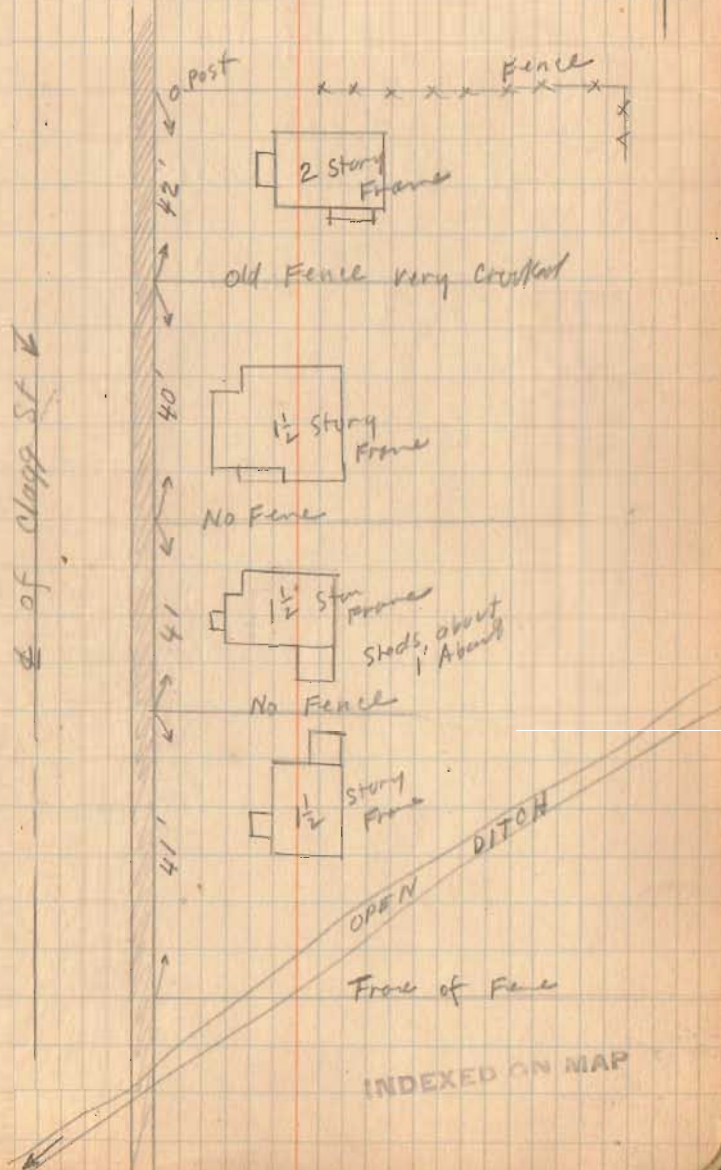 Post
Fence
42'
2 Story
Frame
Old Fence very Crooked
℄ of Clagg St
40'
1½ Story
Frame
No Fence
41
1½ Stor
Frame
Sheds, about
1
No Fence
41'
1½ Story
Frame
OPEN DITCH
of Fence
INDEXED ON MAP